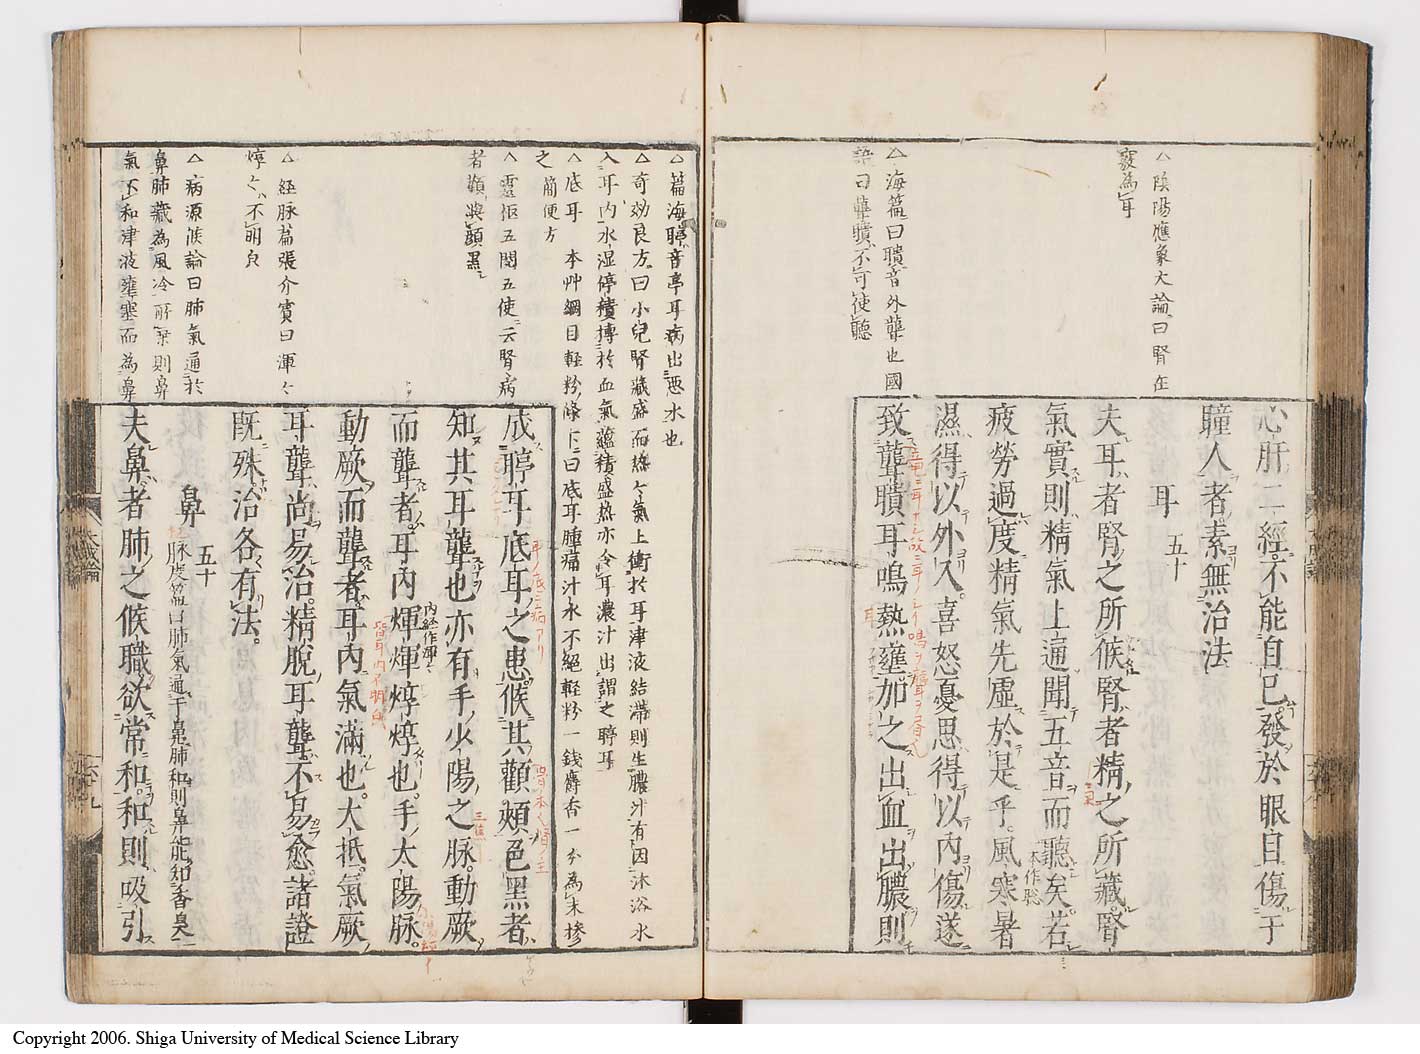 △陰陽應象大論曰腎在
竅為耳
△海篇曰聵音外聾也國
語曰聾聵不可使聽
心肝二經不能自已發於眼目傷于
瞳人者素無治法
耳 五十
夫耳者腎之所候腎者精之所藏腎
氣實則精氣上通聞五音而聽矣若
本作聡
疲勞過度精氣先虛於是乎風寒暑
濕得以外入喜怒憂思得以內傷遂
致聾聵耳鳴熱壅加之出血出膿則
△篇海聤音亭耳病出惡水也
△奇効良方曰小兒腎藏盛而熱〻氣上衝於耳津液結滞則生膿汁有因沐浴水
入耳内水湿停積搏於血氣蘊積盛热亦令耳濃汁出謂之聤耳
△底耳 本艸綱目軽粉條下曰底耳腫痛汁水不絕軽粉一錢麝香一分為末掺
之 簡便方
△靈枢五閱五使云腎病
者顴與顔黒
△経脉篇張介賓曰渾〻
焞〻不明皃
△病源候論曰肺氣通於
鼻肺藏為風冷所乗則鼻
氣不和津液壅塞而為鼻
成聤耳底耳之患候其顴頰色黑者
知其耳聾也亦有手少陽之脉動厥
而聾者耳內煇煇焞焞也手太陽脉
内経作渾〻
動厥而聾者耳內氣滿也大抵氣厥
耳聾尚易治精脫耳聾不易愈諸證
既殊治各有法
鼻 五十
脉度篇曰肺氣通于鼻肺和則鼻能知香臭
夫鼻者肺之候職欲常和和則吸引
Copyright 2006. Shiga University of Medical Science Library